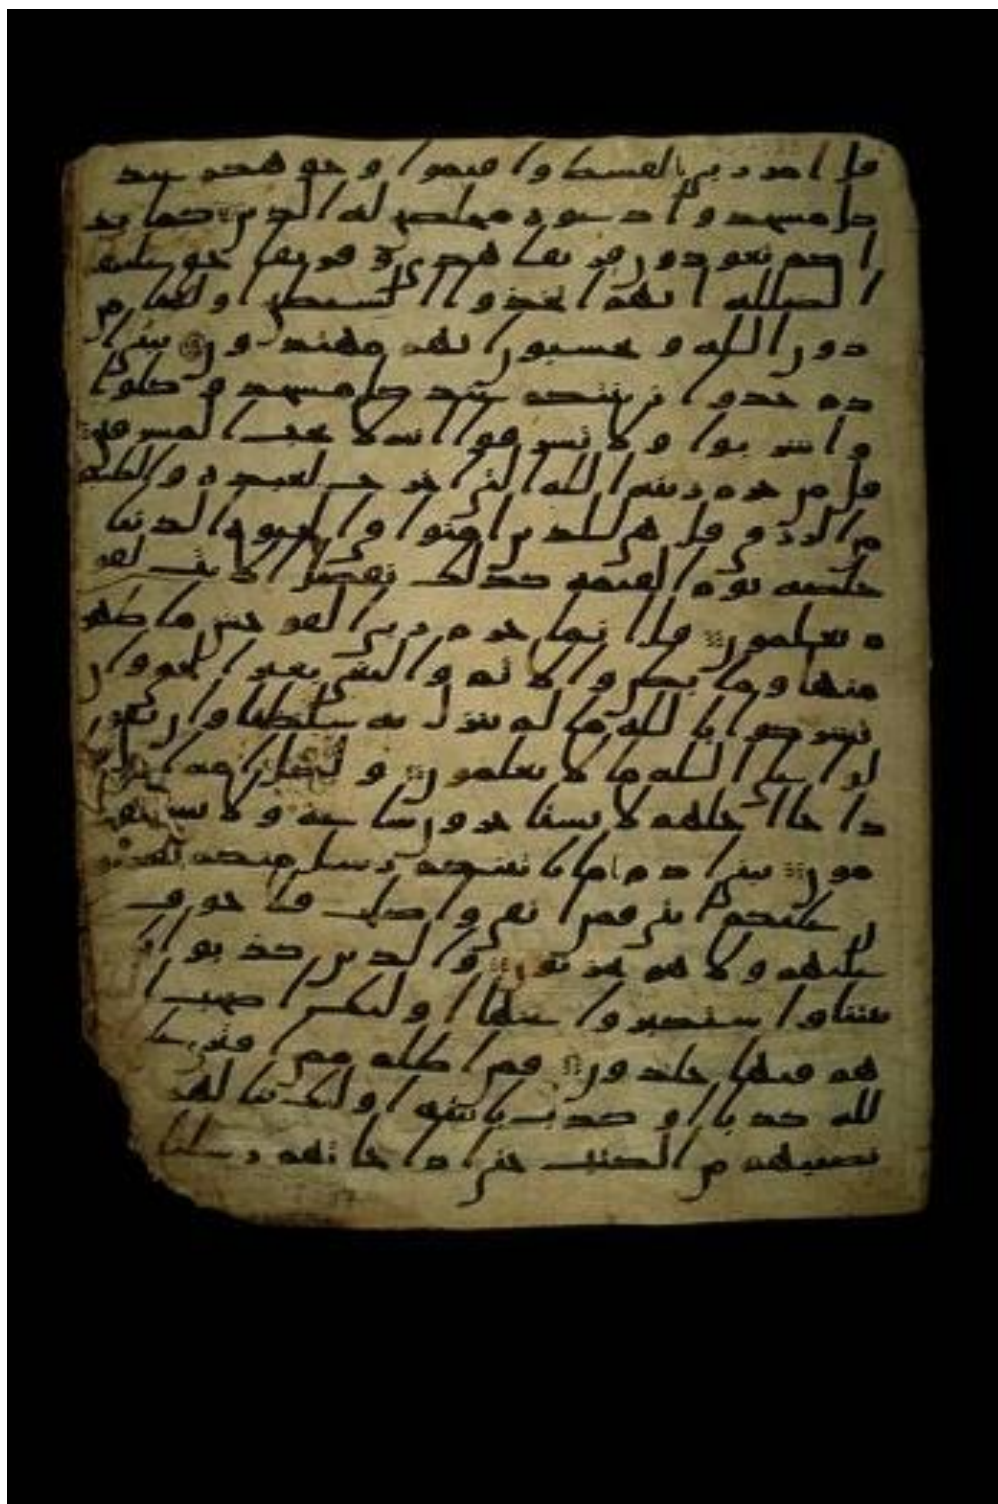 قل امر ربي بالقسط واقيموا وجوهكم عند
كل مسجد وادعوه مخلصين له الدين كما بد
اكم تعودون فريقا هدى وفريقا حق عليهم
الضلله انهم اتخذوا الشيطين اوليا من
دون الله ويحسبون انهم مهتدون يبني ا
دم خذوا زينتكم عند كل مسجد وكلوا
واشربوا ولا تسرفوا انه لا يحب المسرفين
قل من حرم زينه الله التي اخرج لعبده والطيبت
من الرزق قل هي للذين امنوا في الحيوه الدنيا
خلصه يوم القيمه كذلك نفصل الايت لقو
م يعلمون قل انما حرم ربي الفوحش ما ظهر
منها وما بطن والاثم والبغي بغير الحق وان
تشركوا بالله ما لم ينزل به سلطنا وان تقو
لوا على الله ما لا تعلمون ولكل امه اجل فا
ذا جا اجلهم لا يستاخرون ساعه ولا يستقد
مون يبني ادم اما ياتينكم رسل منكم يقصو
ن عليكم ايتي فمن اتقى واصلح فلا خوف
عليهم ولا هم يحزنون والذين كذبوا با
يتنا واستكبروا عنها اوليك اصحب ا
هم فيها خلدون فمن اظلم ممن افترى على ا
لله كذبا او كذب بايته اوليك ينالهم
نصيبهم من الكتب حتى اذا جاتهم رسلنا